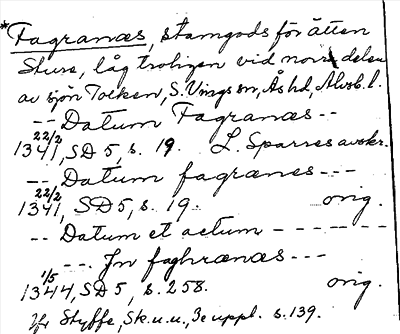 *Fagranæs, stamgods för ätten
Sture, låg troligen vid norra delen
av sjön Tolken, S. Vings sn, Ås hd, Älvsb. l.
-- Datum Fagranæs --
1341 22/2, SD 5, s. 19. L. Sparres avskr.
-- Datum fagranes ---
1341 22/2, SD 5, s. 19. orig.
-- Datum et actum ------
--. In faghrænæs ---
1344 1/5, SD 5, s. 258. orig.
Jfr Styffe, Sk. u. u., 3e uppl. s. 139.